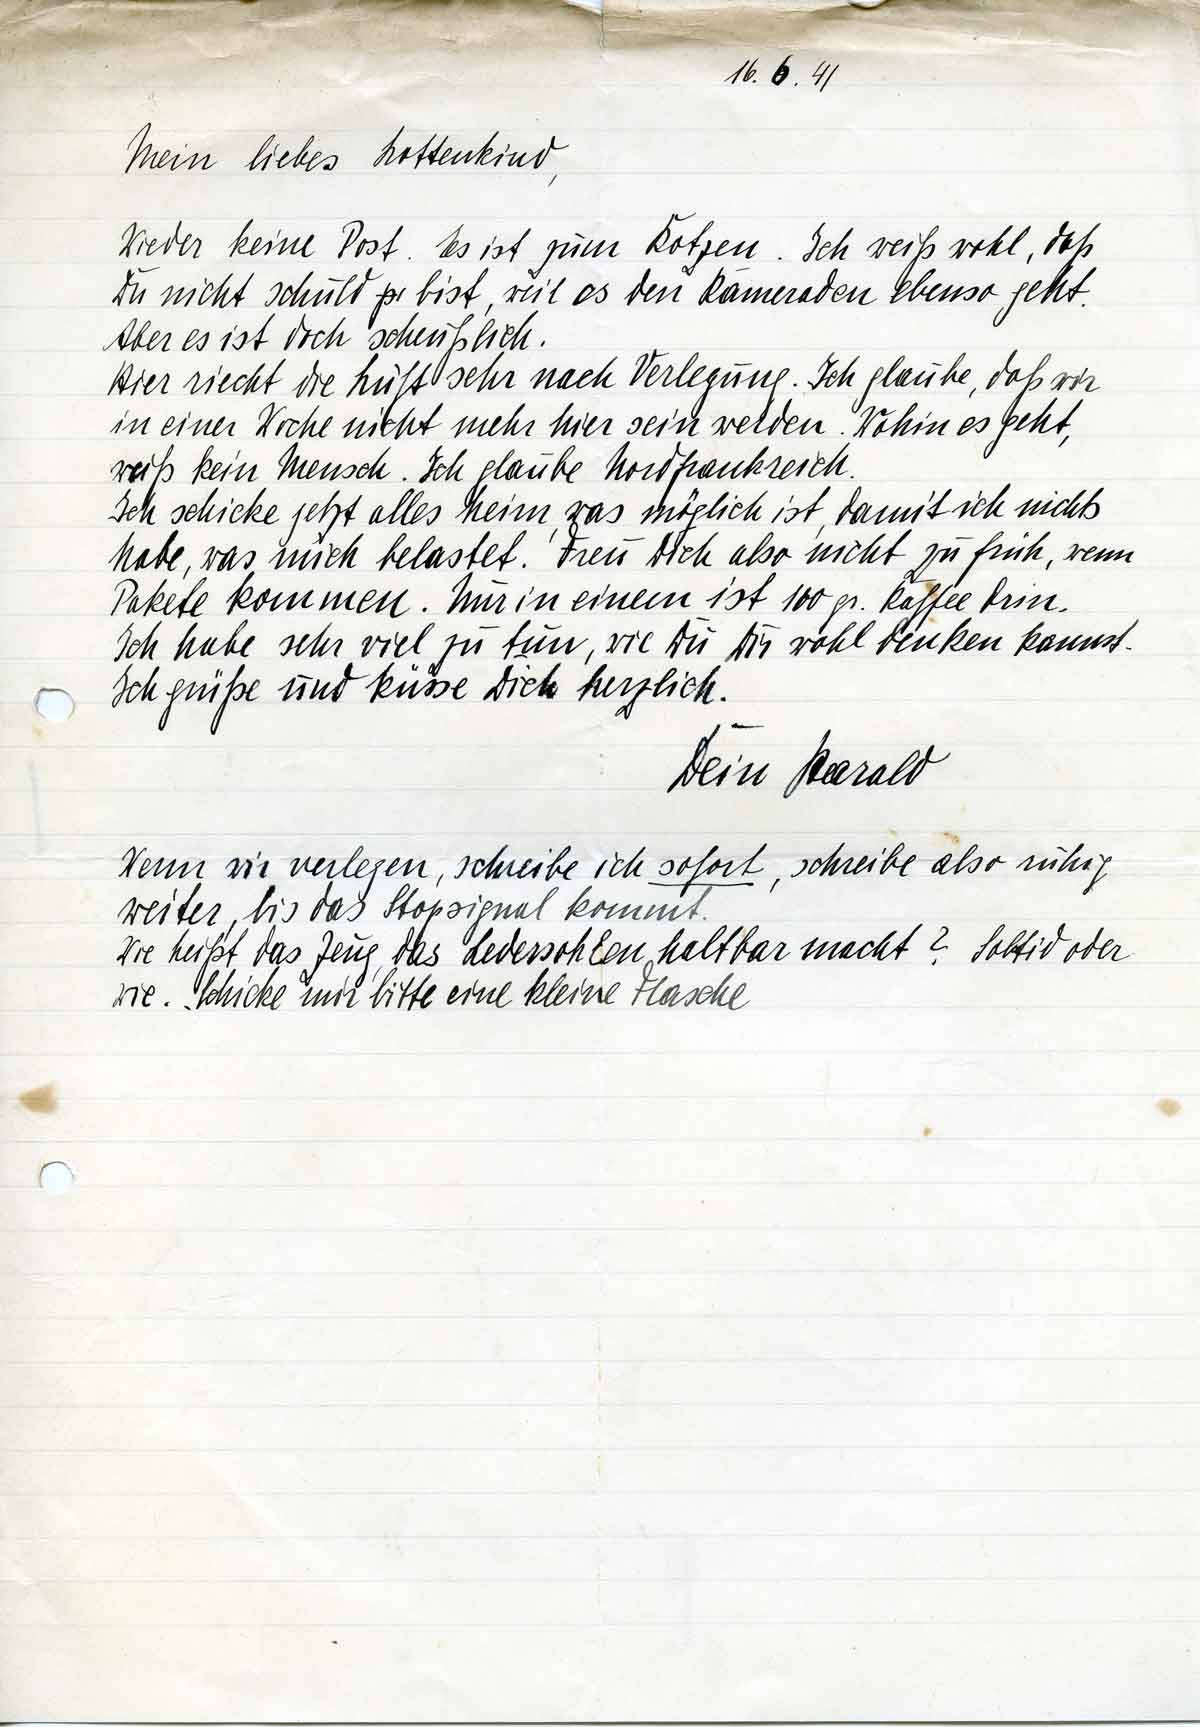 16. 6. 41
Mein liebes Lottenkind,
Wieder keine Post. Es ist zum Kotzen. Ich weiß wohl, daß
Du nicht schuld bist, weil es den Kameraden ebenso geht.
Aber es ist doch scheußlich.
Hier riecht die Luft sehr nach Verlegung. Ich glaube, daß wir
in einer Woche nicht mehr hier sein werden. Wohin es geht,
weiß kein Mensch. Ich glaube Nordfrankreich.
Ich schicke jetzt alles heim, was möglich ist, damit ich nichts
habe, was mich belastet. Freu Dich also nicht zu früh, wenn
Pakete kommen. Nur in einem ist 100 gr. Kaffee drin.
Ich habe sehr viel zu tun, wie Du Dir wohl denken kannst.
Ich grüße und küsse Dich herzlich.
Dein Harald
Wenn wir verlegen, schreibe ich sofort, schreibe also ruhig
weiter, bis das Stopsignal kommt.
Wie heißt das Zeug, das Ledersohlen haltbar macht? Soltid oder
wie. Schicke mir bitte eine kleine Flasche